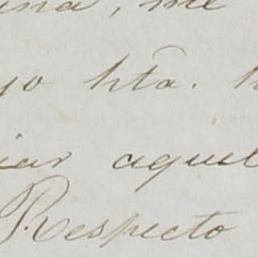 ma, me
yo hta. h
iar aquel
Respecto